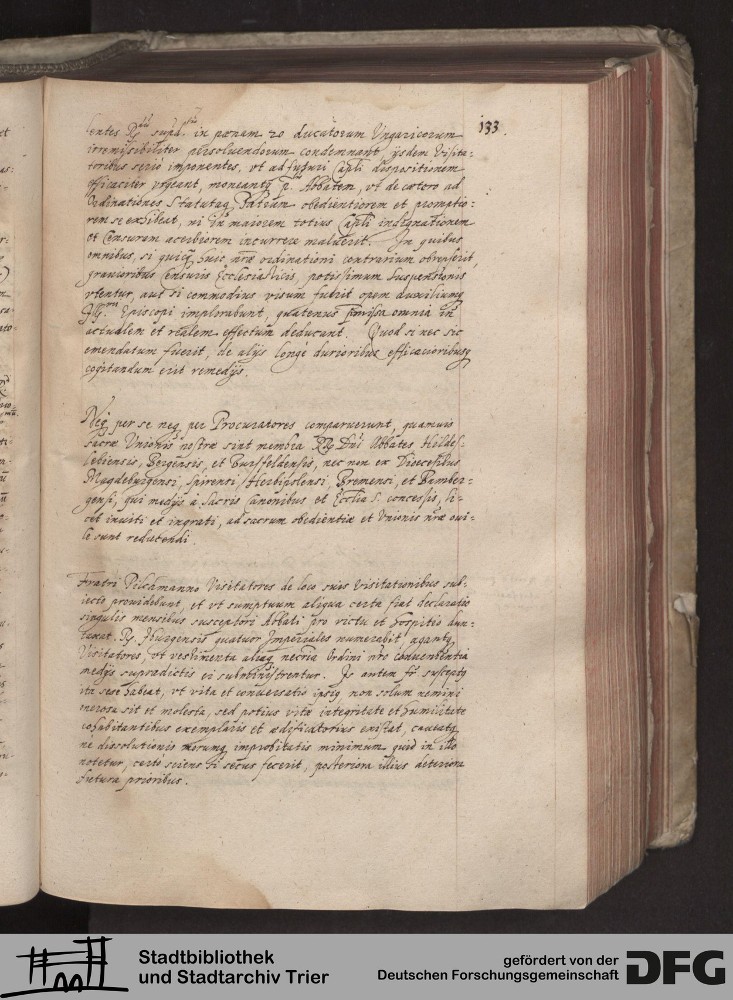 133.
lentes R. dus supd. in pœnam 20 ducatorum Vngaricorum
irremissibiliter persoluendorum condemnant, ijsdem Visita-
toribus serio imponentes, vt ad futuri Capli dispositionem
efficaciter vrgeant, moneantq; Abbatem, vt de cœtero ad
Ordinationes Statutaq; Patrum obedientiorem et promptio-
rem se exhibeat, ni in maiorem totius Capli indignationem
et Censuram acerbiorem incurrere maluerit. In quibus
omnibus, si quicq; huic nræ ordinationi contrarium obrepserit,
grauioribus Censuris Ecclesiasticis, potissimum Suspensionis
vtentur, aut si commodius visum fuerit opem auxiliumq;
Episcopi implorabunt, quatenus præmissa omnia in
actualem et realem effectum deducant. Quod si nec sic
emendatum fuerit, de alijs longe durioribus efficacioribusq;
cogitandum erit remedijs.
Neq; per se neq; per Procuratores comparuerunt, quamuis
sacræ Unionis nostræ sint membra RR. Dni Abbates Huldes-
lebiensis, Bergensis, et Bursfeldensis, nec non ex Diœcesibus
Magdeburgensi, Spirensi, Herbipolensi, Bremensi, et Bamber-
gensi, qui medijs à Sacris Canonibus et Ecclia S. concessis, li-
cet inuiti et ingrati, ad sacrum obedientiæ et Vnionis nræ oui-
le sunt reducendi.
Fratri Pilcamanno Visitatores de loco suis Visitationibus sub-
iecto prouidebunt, et vt sumptuum aliqua certa fiat declaratio
singulis mensibus susceptori Abbati pro victu et hospitio dun-
taxat. R. Iburgensis quatuor Imperiales numerabit, agantq;
Visitatores, vt vestimenta aliaq; necria Ordini nro conuenientia
medijs supradictis ei subministrentur. Is autem fr susceptus
ita sese habeat, vt vita et conuersatio ipsius non solum nemini
onerosa sit et molesta, sed potius vitæ integritate et humilitate
cohabitantibus exemplaris et ædificatorius existat, caueatq;
ne dissolutionis morumq; improbitatis minimum quid in illo
notetur, certo sciens si secus fecerit, posteriora illius deteriora
futura prioribus.
Stadtbibliothek
und Stadtarchiv Trier
gefördert von der
Deutschen Forschungsgemeinschaft
DFG